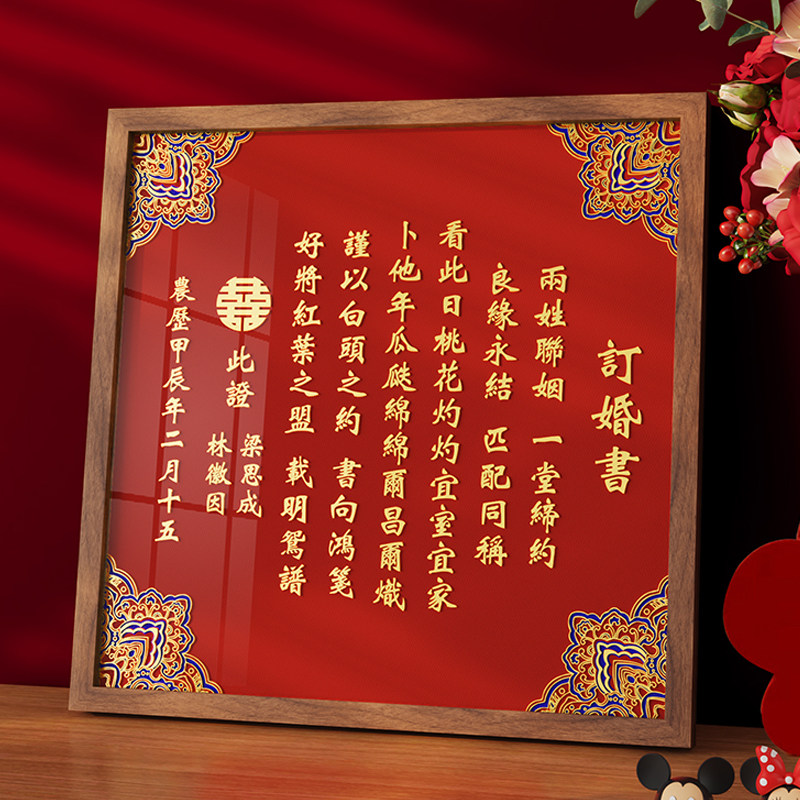 訂婚書
兩姓聯姻 一堂締約
良緣永結 匹配同稱
看此日桃花灼灼宜室宜家
卜他年瓜瓞綿綿爾昌爾熾
謹以白頭之約 書向鴻箋
好將紅葉之盟 載明鴛譜
囍
此證
梁思成
林徽因
農歷甲辰年二月十五